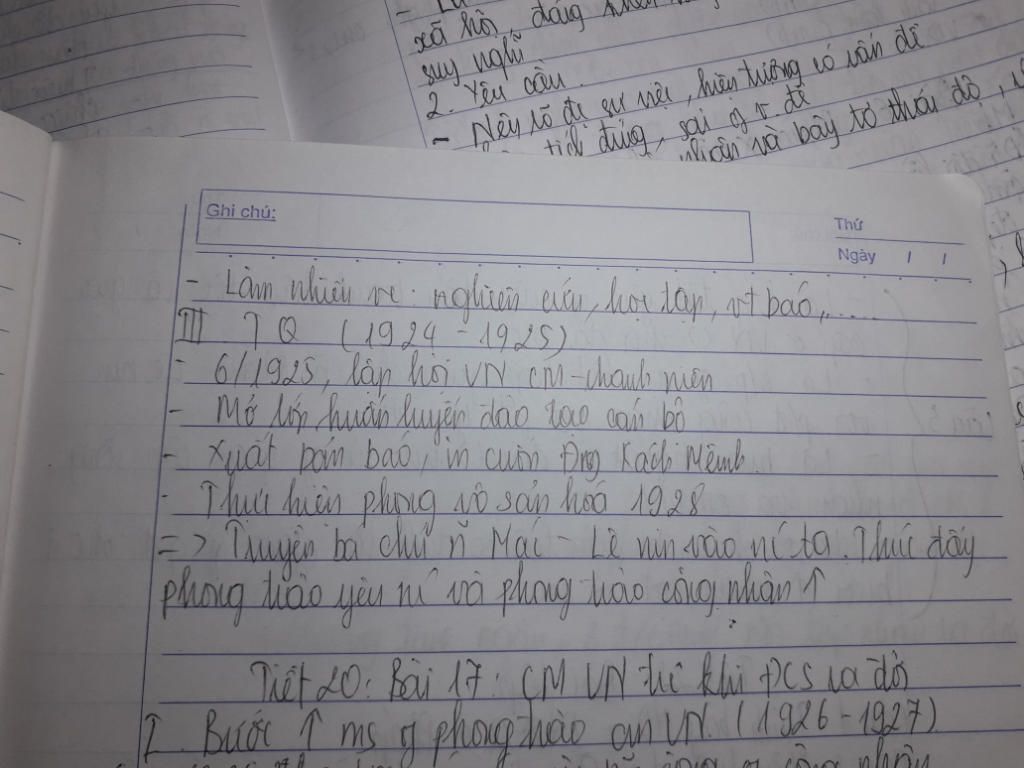 xã hội, đáng
suy nghĩ
2. Yêu cầu.
- Nêu rõ đc sự việc, hiện tượng có vấn đề
tích đúng, sai of v. đề
nhân và bày tỏ thái độ,
Ghi chú:
Thứ
Ngày / /
- Làm nhiều n: nghiên cứu, học tập, vt báo,.....
III. TQ (1924 - 1925)
- 6/1925, lập hội VN CM-thanh niên
- Mở lớp huấn luyện đào tạo cán bộ
- Xuất bản báo, in cuốn Đng Kách Mệnh
- Thực hiện phong vô sản hoá 1928
=> Truyền bá chủ ñ Mác - Lê nin vào nc ta. Thúc đẩy
phong trào yêu nc và phong trào công nhân ↑
Tiết 20: Bài 17: CM VN trc khi ĐCS ra đời
I. Bước ↑ ms of phong trào cn VN. (1926-1927)
công nhân